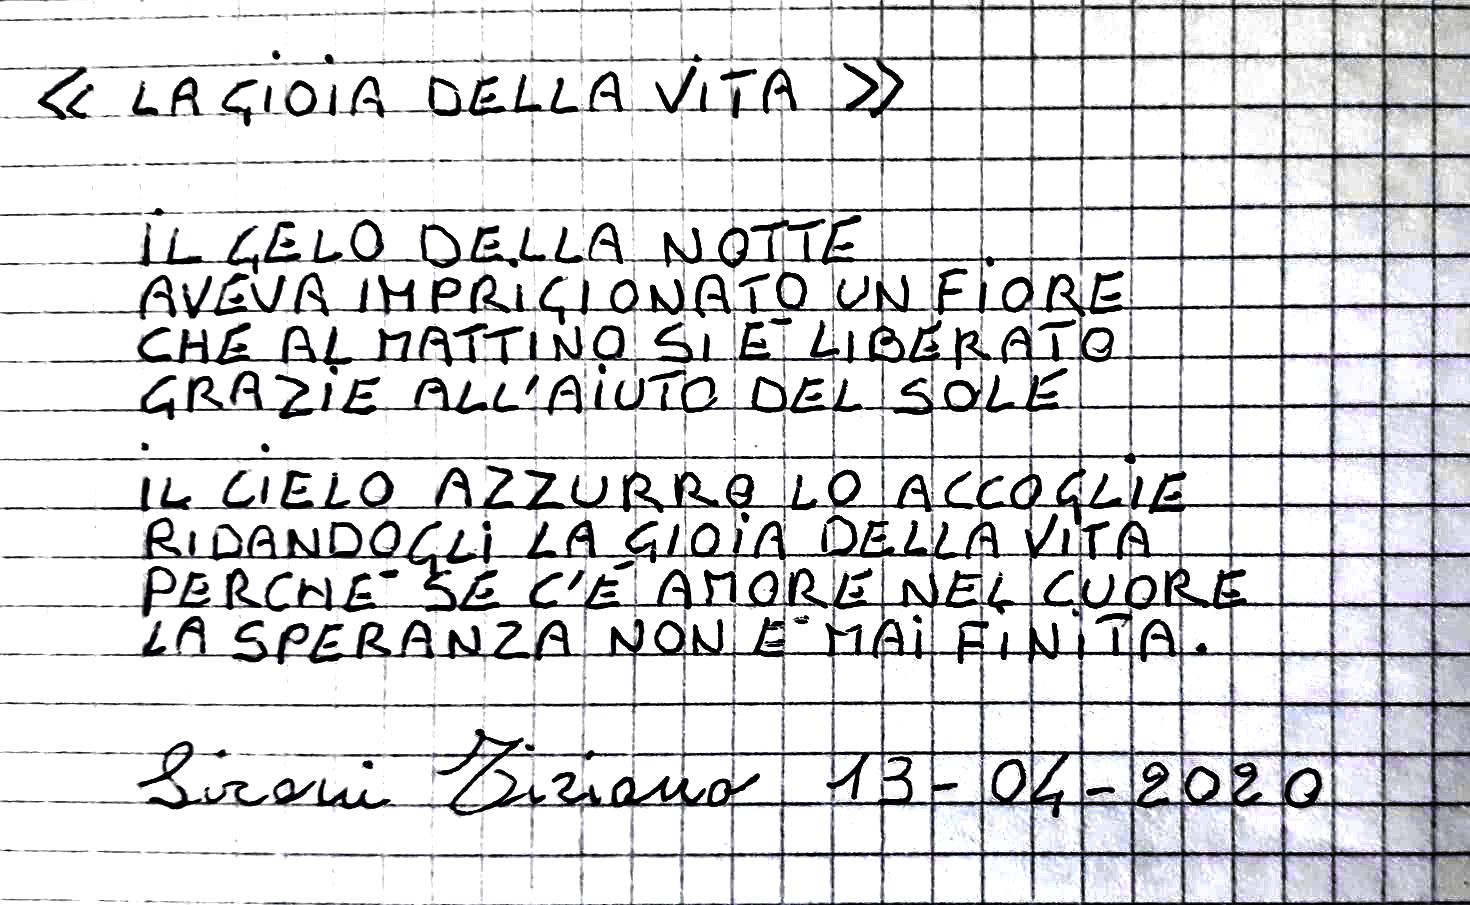 << LA GIOIA DELLA VITA >>
IL GELO DELLA NOTTE
AVEVA IMPRIGIONATO UN FIORE
CHE AL MATTINO SI È LIBERATO
GRAZIE ALL'AIUTO DEL SOLE
IL CIELO AZZURRO LO ACCOGLIE
RIDANDOGLI LA GIOIA DELLA VITA
PERCHÈ SE C'È AMORE NEL CUORE
LA SPERANZA NON È MAI FINITA.
Sironi Tiziano 13-04-2020